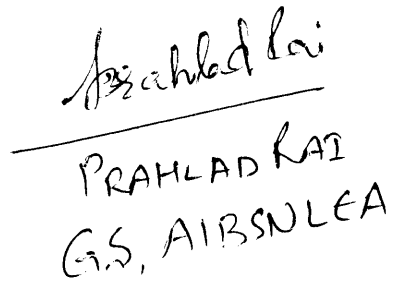 Prahlad Rai
PRAHLAD RAI
G.S, AIBSNLEA